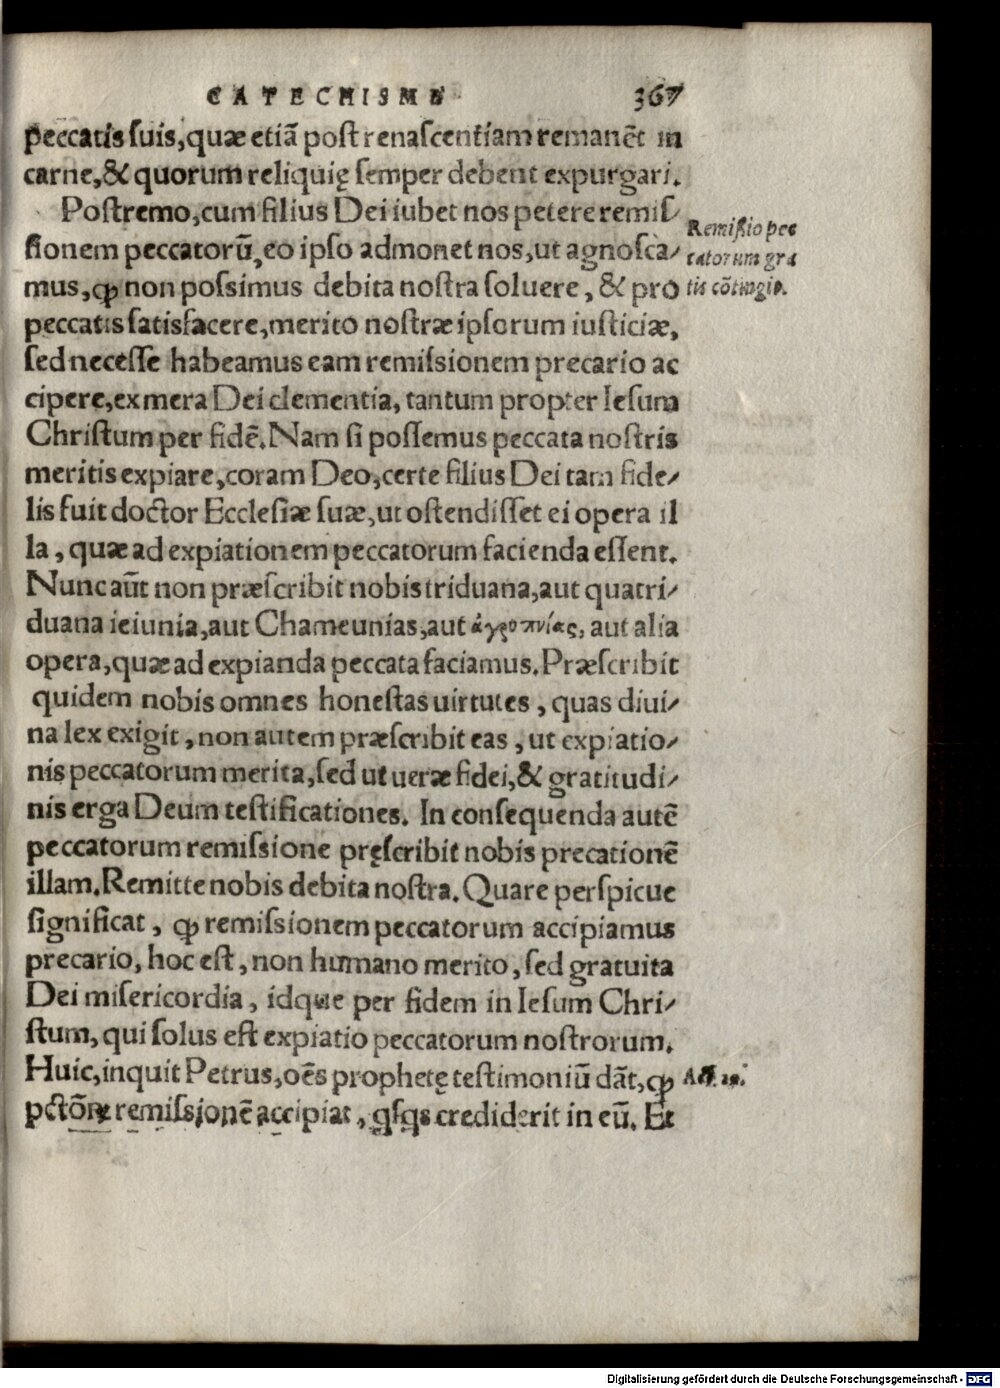 CATECHISMS 367
peccatis ſuis, quæ etiã poſt renaſcentiam remanẽt in
carne, & quorum reliquię ſemper debent expurgari.
Poſtremo, cum filius Dei iubet nos petere remiſ⸗
ſionem peccatorũ, eo ipſo admonet nos, ut agnoſca⸗
mus, ꝙ non poſsimus debita noſtra ſoluere, & pro
peccatis ſatisfacere, merito noſtræ ipſorum iuſticiæ,
ſed neceſſe habeamus eam remiſsionem precario ac
cipere, ex mera Dei clementia, tantum propter Ieſum
Chriſtum per fidẽ. Nam ſi poſſemus peccata noſtris
meritis expiare, coram Deo, certe filius Dei tam fide⸗
lis fuit doctor Eccleſiæ ſuæ, ut oſtendiſſet ei opera il
la, quæ ad expiationem peccatorum facienda eſſent.
Nunc aũt non præſcribit nobis triduana, aut quatri⸗
duana ieiunia, aut Chameunias, aut ἀγρυπνίας, aut alia
opera, quæ ad expianda peccata faciamus. Præſcribit
quidem nobis omnes honeſtas uirtutes, quas diui⸗
na lex exigit, non autem præſcribit eas, ut expiatio⸗
nis peccatorum merita, ſed ut ueræ fidei, & gratitudi⸗
nis erga Deum teſtificationes. In conſequenda autẽ
peccatorum remiſsione pręſcribit nobis precationẽ
illam. Remitte nobis debita noſtra. Quare perſpicue
ſignificat, ꝙ remiſsionem peccatorum accipiamus
precario, hoc eſt, non humano merito, ſed gratuita
Dei miſericordia, idque per fidem in Ieſum Chri⸗
ſtum, qui ſolus eſt expiatio peccatorum noſtrorum.
Huic, inquit Petrus, oẽs prophetę teſtimoniũ dãt, ꝙ
pctõꝝ remiſsionẽ accipiat, qſqs crediderit in eũ. Et
Remiſsio pec
catorum gra
tis cõtingit.
Act. 10.
Digitalisierung gefördert durch die Deutsche Forschungsgemeinschaft - DFG